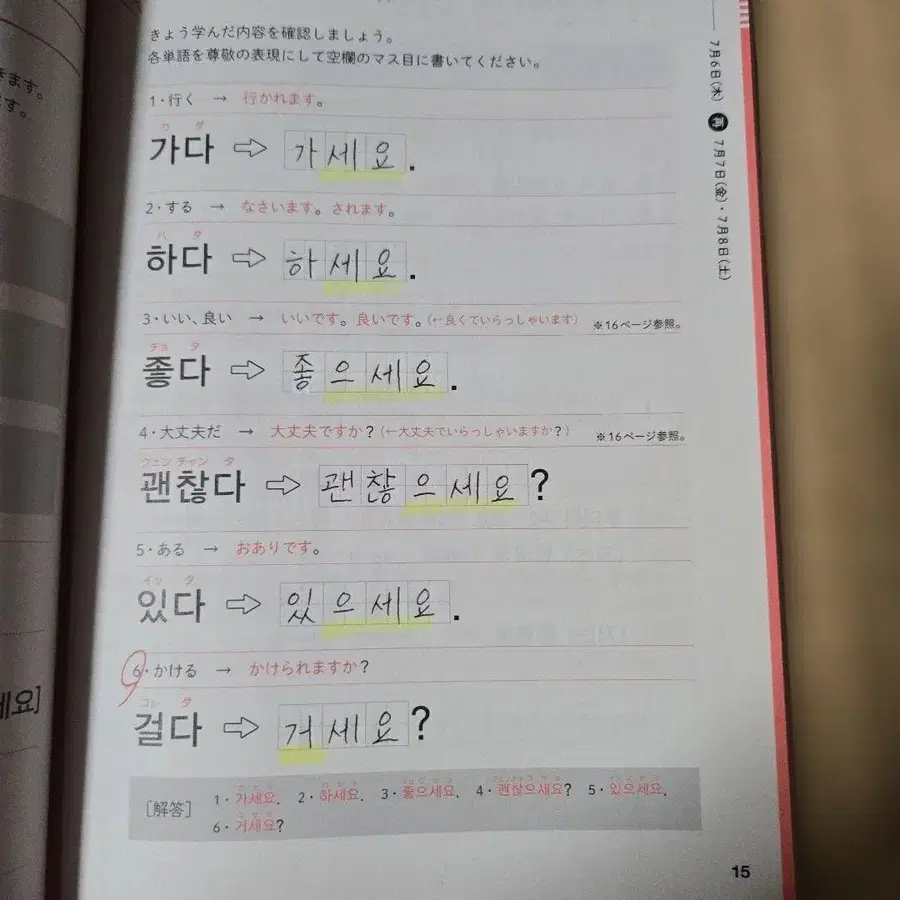 きょう学んだ内容を確認しましょう。
各単語を尊敬の表現にして空欄のマス目に書いてください。
1・行く → 行かれます。
カ タ
가다 ⇨ 가세요.
2・する → なさいます。されます。
ハ タ
하다 ⇨ 하세요.
3・いい、良い → いいです。良いです。(←良くていらっしゃいます) ※16ページ参照。
チョ タ
좋다 ⇨ 좋으세요.
4・大丈夫だ → 大丈夫ですか?(←大丈夫でいらっしゃいますか?) ※16ページ参照。
クェン チャン タ
괜찮다 ⇨ 괜찮으세요?
5・ある → おありです。
イッ タ
있다 ⇨ 있으세요.
6・かける → かけられますか?
コル タ
걸다 ⇨ 거세요?
[解答] 1・가세요. 2・하세요. 3・좋으세요. 4・괜찮으세요? 5・있으세요.
6・거세요?
15
7月6日(木) 再 7月7日(金)・7月8日(土)
きます。
です。
세요]